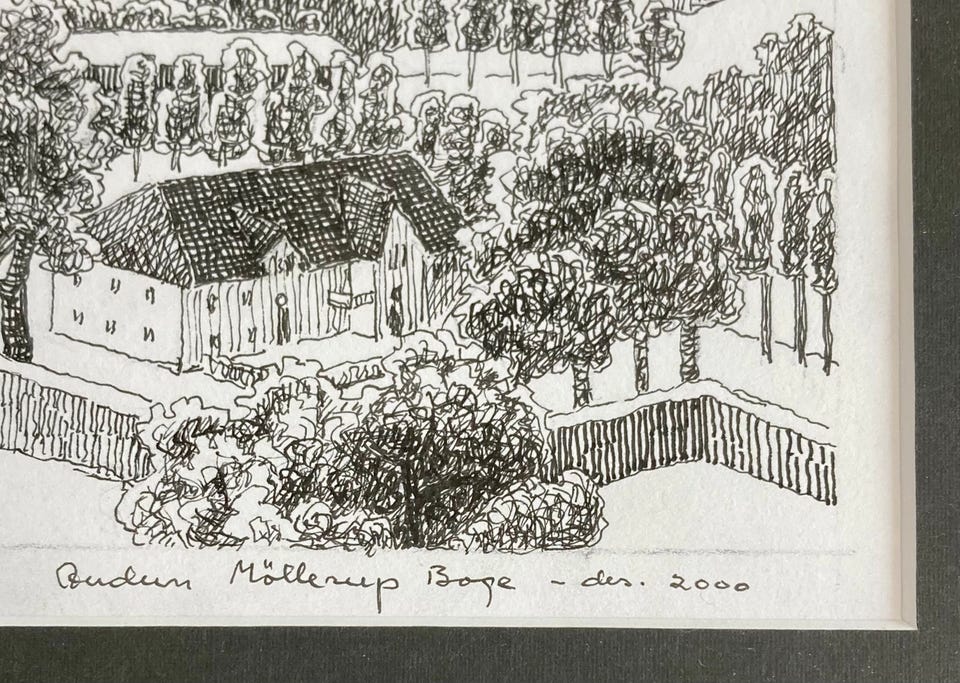 Audun Möllerup Boge - des. 2000